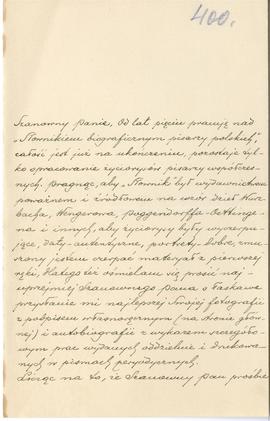 400.
Szanowny Panie, Od lat pięciu pracuję nad
"Słownikiem biograficznym pisarzy polskich",
całość jest już na ukończeniu, pozostaje tyl-
ko opracowanie życiorysów pisarzy współczes-
nych. Pragnąc, aby "Słownik" był wydawnictwem
poważnem i źródłowem na wzór dzieł Wurz-
bacha, Wengerowa, Poggendorffa Oettinge-
ra i innych, aby życiorysy były wyczerpu-
jące, daty autentyczne, portrety dobre, zmu-
szony jestem czerpać materyał z pierwszej
ręki. Dlatego też ośmielam się prosić naj-
uprzejmiej Szanownego Pana o łaskawe
przysłanie mi najlepszej Swojej fotografii
z podpisem własnoręcznym (na stronie głów-
nej) i autobiografii z wykazem szczegóło-
wym prac wydanych oddzielnie i drukowa-
nych w pismach peryodycznych.
Licząc na to, iż Szanowny Pan prośbie